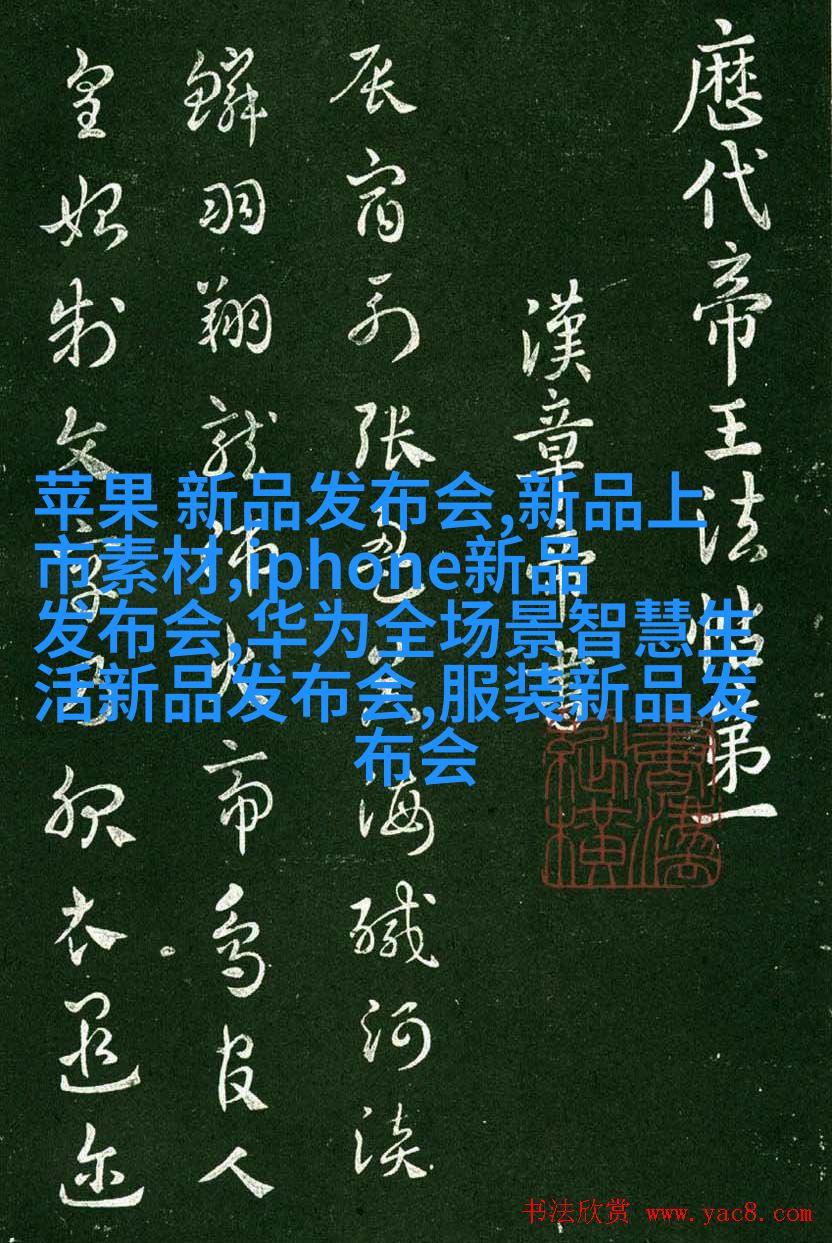 厯代帝王法帖第一
漢章帝書
辰宿列張海鹹河淡
鱗羽翔龍師火帝鳥官人
皇始制文字乃服衣遐迩
苹果 新品发布会,新品上
市素材,iphone新品
发布会,华为全场景智慧生
活新品发布会,服装新品发
布会
书法欣赏 www.yac8.com